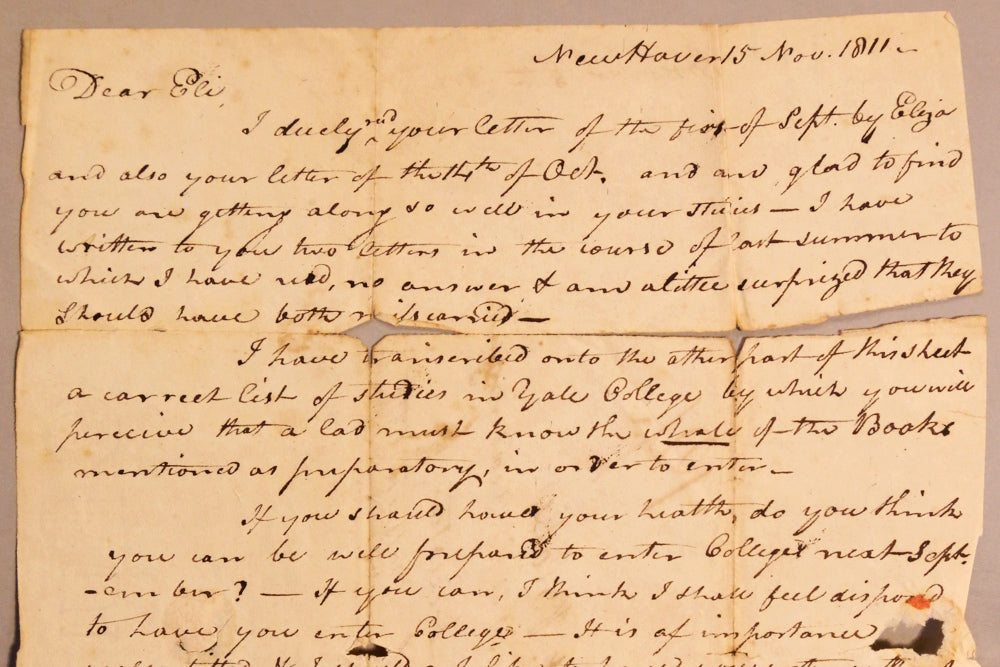 New Haven 15 Nov. 1811 –
Dear Eli,
I duely recd your letter of the first of Sept. by Eliza
and also your letter of the 14th of Oct. and am glad to find
you are getting along so well in your studies – I have
written to you two letters in the course of last summer to
which I have recd, no answer & am a little surprized that they
should have both miscarried –
I have transcribed onto the other part of this sheet
a correct list of studies in Yale College by which you will
percieve that a lad must know the whole of the Books
mentioned as preparatory, in order to enter –
If you should have your health, do you think
you can be well prepared to enter College next Sept-
-ember? – If you can, I think I shall feel disposed
to have you enter College – It is of importance